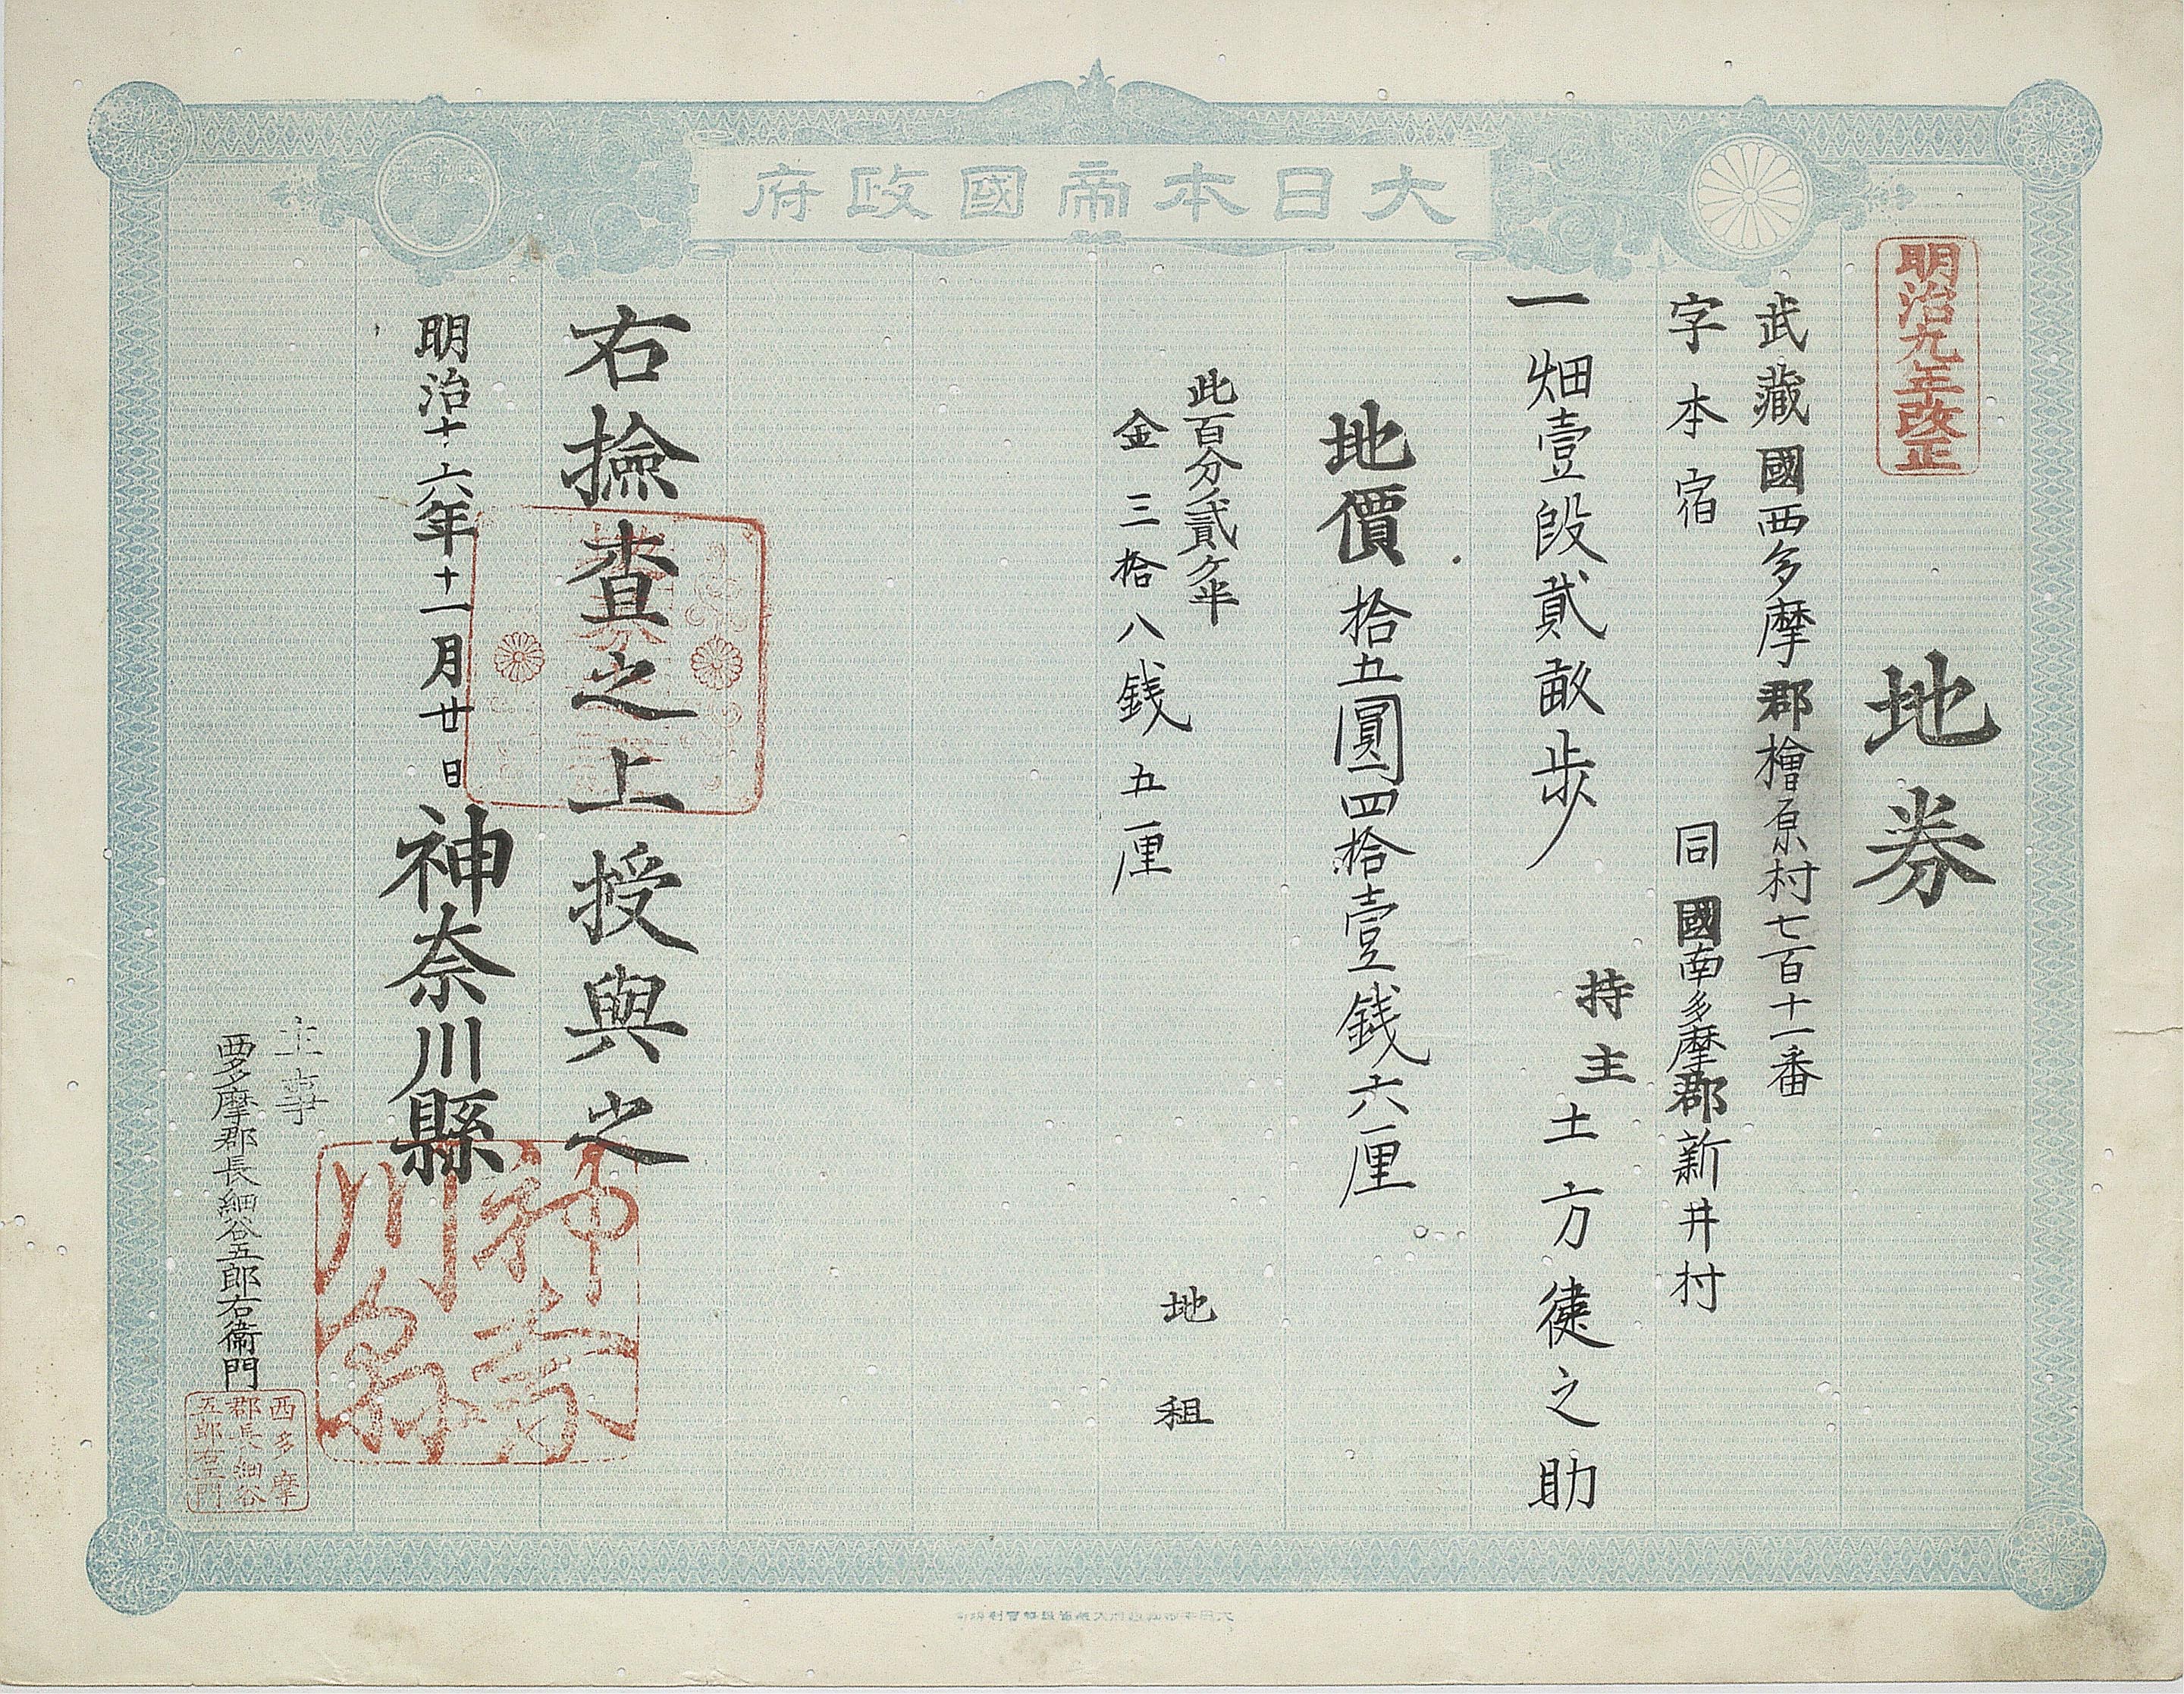 大日本帝國政府
明治九年改正
地券
武藏國西多摩郡檜原村七百十一番
字本宿
同國南多摩郡新井村
一畑壹段貳畝歩
持主土方健之助
地價拾五圓四拾壹銭六厘
此百分ノ貳ヶ半
金三拾八銭五厘
地租
右撿查之上授與之
明治十六年十一月廿日
神奈川縣
神奈川縣
主事
西多摩郡長細谷五郎右衞門
西多摩
郡長細谷
五郎右衛門